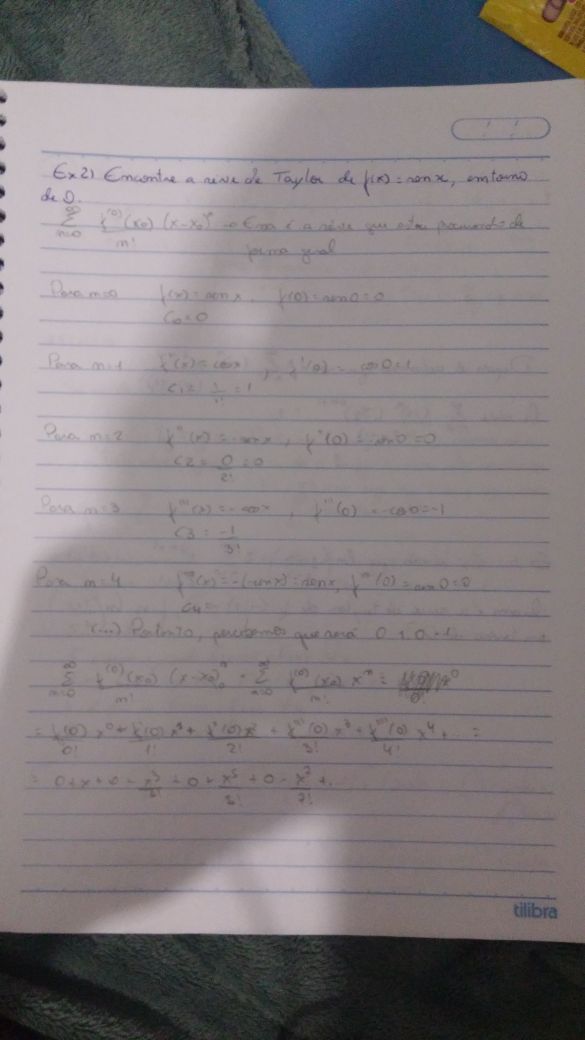 Ex 2) Encontre a série de Taylor de f(x) = sen x, em torno
de 0.
∞ Σ n=0 f⁽ⁿ⁾(x₀) (x-x₀)ⁿ / n! → Essa é a série que estou procurando de
forma geral
Para n=0 f(x) = sen x, f(0) = sen 0 = 0
C₀ = 0
Para n=1 f'(x) = cos x, f'(0) = cos 0 = 1
C₁ = 1/1! = 1
Para n=2 f''(x) = -sen x, f''(0) = -sen 0 = 0
C2 = 0/2! = 0
Para n=3 f'''(x) = -cos x, f'''(0) = -cos 0 = -1
C3 = -1/3!
Para n=4 f''''(x) = -(-sen x) = sen x, f''''(0) = sen 0 = 0
C4 =
(...) Portanto, percebemos que será 0 1 0 -1
∞ Σ n=0 f⁽ⁿ⁾(x₀) (x-x₀)ⁿ / n! = ∞ Σ n=0 f⁽ⁿ⁾(x₀) xⁿ / n! =
= f(0)/0! x⁰ + f'(0)/1! x¹ + f''(0)/2! x² + f'''(0)/3! x³ + f''''(0)/4! x⁴ + ... =
= 0 + x + 0 - x³/3! + 0 + x⁵/5! + 0 - x⁷/7! + ...
tilibra